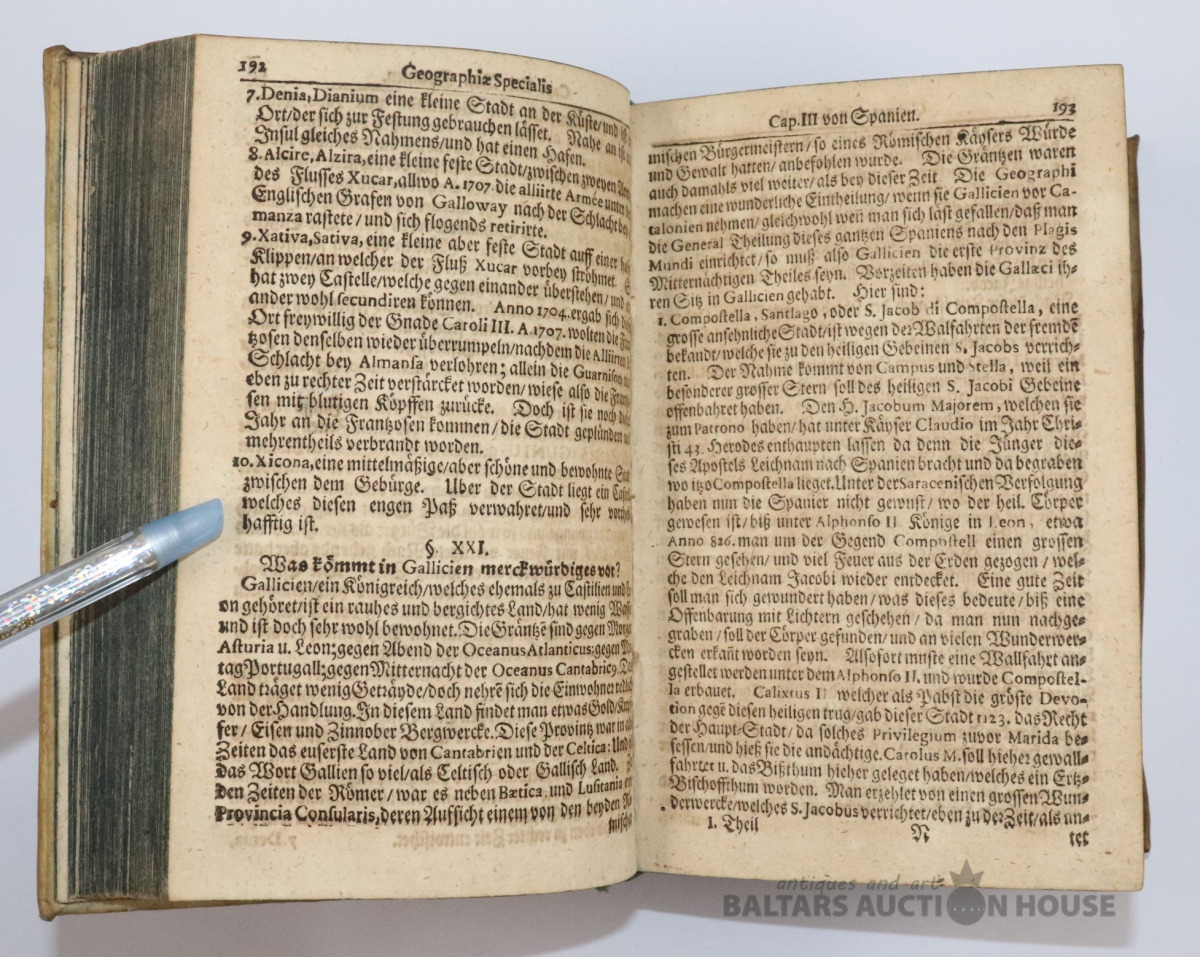 192
Geographiæ Specialis
7. Denia, Dianium eine kleine Stadt an der Küste/und
Ort/der sich zur Festung gebrauchen lässet. Nahe an ist
Insul gleiches Nahmens/und hat einen Hafen.
8. Alcire, Alzira, eine kleine feste Stadt/zwischen zweyen
des Flusses Xucar, allwo A. 1707. die alliirte Armée unter
Englischen Grafen von Galloway nach der Schlacht bey
manza rastete/und sich flogends retirirte.
9. Xativa, Sativa, eine kleine aber feste Stadt auff einer
Klippen/an welcher der Fluß Xucar vorbey ströhmet.
hat zwey Castelle/welche gegen einander überstehen/und
ander wohl secundiren können. Anno 1704. ergab sich
Ort freywillig der Gnade Caroli III. A. 1707. wolten die
tzosen denselben wieder überrumpeln/nachdem die Alliirten
Schlacht bey Almansa verlohren; allein die Guarnison
eben zu rechter Zeit verstärcket worden/wiese also die
sen mit blutigen Köpffen zurücke. Doch ist sie noch
Jahr an die Frantzosen kommen/die Stadt geplündert
mehrentheils verbrandt worden.
10. Xicona, eine mittelmäßige/aber schöne und bewohnte
zwischen dem Gebürge. Uber der Stadt liegt ein
welches diesen engen Paß verwahret/und sehr
hafftig ist.
§. XXI.
Was kömmt in Gallicien merckwürdiges vor?
Gallicien/ein Königreich/welches ehemals zu Castilien und
on gehöret/ist ein rauhes und bergichtes Land/hat wenig
und ist doch sehr wohl bewohnet. Die Gräntzē sind gegen
Asturia u. Leon; gegen Abend der Oceanus Atlanticus; gegen
tag Portugall; gegen Mitternacht der Oceanus Cantabric9.
Land träget wenig Geträyde/doch nehrē sich die Einwohner
von der Handlung. In diesem Land findet man etwas Gold/
fer/ Eisen und Zinnober Bergwercke. Diese Provintz war in
Zeiten das euserste Land von Cantabrien und der Celtica: Und
das Wort Gallien so viel/als Celtisch oder Gallisch Land.
den Zeiten der Römer/ war es neben Bætica, und Lusitania
Provincia Consularis, deren Aufsicht einem von den beyden
mischen
Cap. III von Spanien.
193
mischen Bürgermeistern/ so eines Römischen Käysers Würde
und Gewalt hatten/ anbefohlen wurde. Die Gräntzen waren
auch damahls viel weiter/ als bey dieser Zeit. Die Geographi
machen eine wunderliche Eintheilung/ wenn sie Gallicien vor Ca-
talonien nehmen/ gleichwohl weñ man sich läst gefallen/daß man
die General Theilung dieses gantzen Spaniens nach den Plagis
Mundi einrichtet/so muß also Gallicien die erste Provinz des
Mitternächtigen Theiles seyn. Vorzeiten haben die Gallæci ih-
ren Sitz in Gallicien gehabt. Hier sind:
1. Compostella, Santiago, oder S. Jacob di Compostella, eine
grosse ansehnliche Stadt/ist wegen der Walfahrten der fremdē
bekandt/welche sie zu den heiligen Gebeinen S. Jacobs verrich-
ten. Der Nahme kommt von Campus und Stella, weil ein
besonderer grosser Stern soll des heiligen S. Jacobi Gebeine
offenbahret haben. Den H. Jacobum Majorem, welchen sie
zum Patrono haben/ hat unter Käyser Claudio im Jahr Chri-
sti 43. Herodes enthaupten lassen da denn die Jünger die-
ses Apostels Leichnam nach Spanien bracht und da begraben
wo itzo Compostella lieget. Unter der Saracenischen Verfolgung
haben nun die Spanier nicht gewust/ wo der heil. Cörper
gewesen ist/ biß unter Alphonso II. Könige in Leon, etwa
Anno 826. man um der Gegend Compostell einen grossen
Stern gesehen/ und viel Feuer aus der Erden gezogen/ wel-
che den Leichnam Jacobi wieder entdecket. Eine gute Zeit
soll man sich gewundert haben/ was dieses bedeute/ biß eine
Offenbarung mit Lichtern geschehen/ da man nun nachge-
graben/ soll der Cörper gefunden/ und an vielen Wunderwer-
cken erkañt worden seyn. Alsofort muste eine Wallfahrt an-
gestellet werden unter dem Alphonso II. und wurde Compostel-
la erbauet. Calixtus II. welcher als Pabst die gröste Devo-
tion gegē diesen heiligen trug/gab dieser Stadt 1123. das Recht
der Haupt-Stadt/ da solches Privilegium zuvor Marida be-
sessen/und hieß sie die andächtige. Carolus M. soll hieher gewall-
fahrtet u. das Bißthum hieher geleget haben/welches ein Ertz-
Bischoffthum worden. Man erzehlet von einen grossen Wun-
derwercke/welches S. Jacobus verrichtet/eben zu der Zeit/als un-
I. Theil
N
ter
antiques and art
BALTARS AUCTION HOUSE